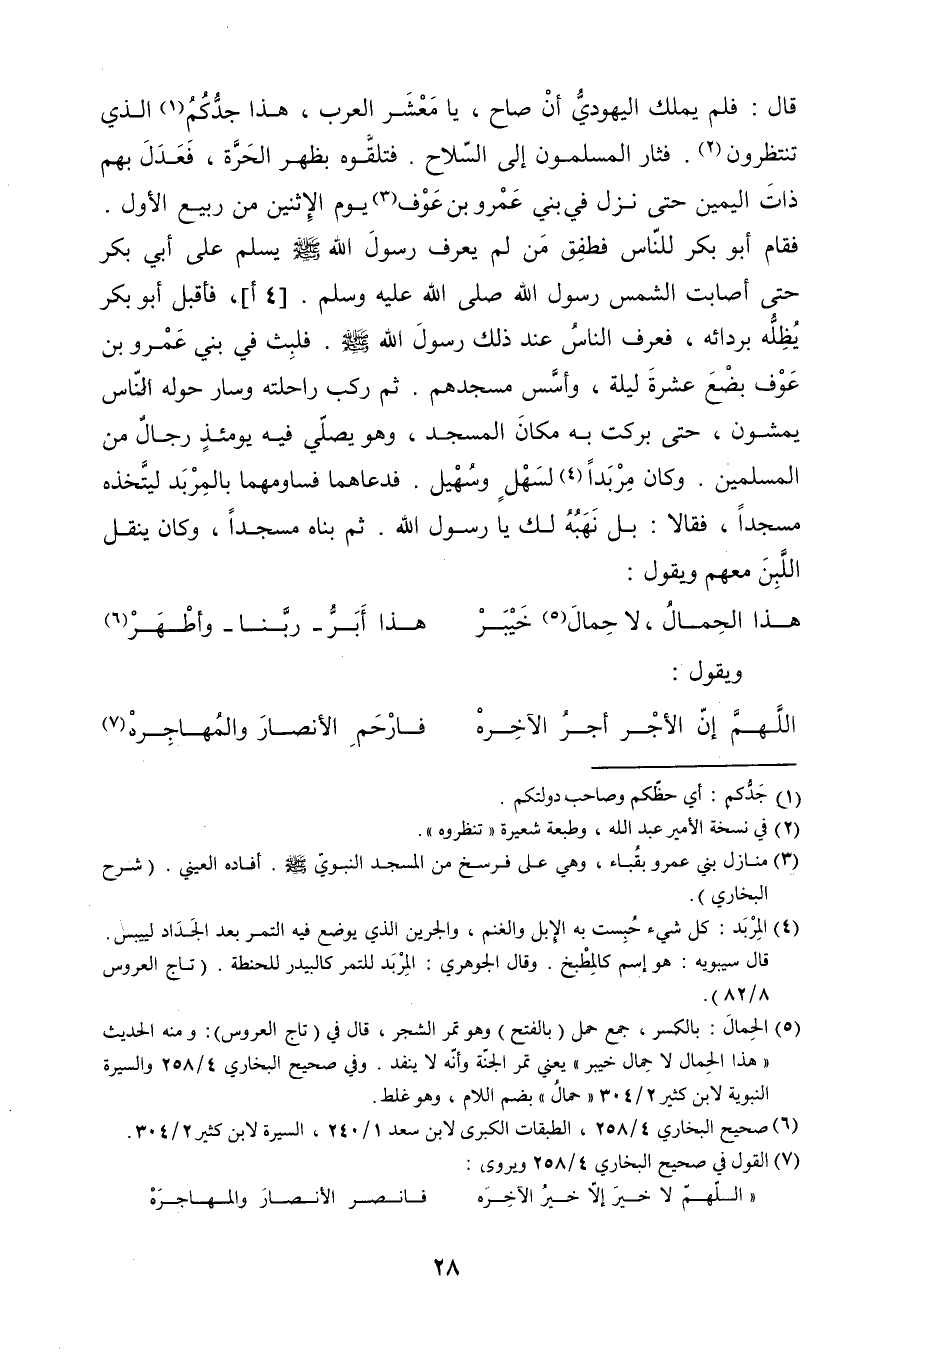 قال : فلم يملك اليهوديُّ أنْ صاح ، يا مَعْشَر العرب ، هذا جدُّكُمُ(١) الذي
تنتظرون(٢) . فثار المسلمون إلى السّلاح . فتلقَّوه بظهر الحَرَّة ، فَعَدَلَ بهم
ذاتَ اليمين حتى نزل في بني عَمْرو بن عَوْف(٣) يوم الإثنين من ربيع الأول .
فقام أبو بكر للنّاس فطفِق مَن لم يعرف رسولَ الله ﷺ يسلم على أبي بكر
حتى أصابت الشمس رسول الله صلى الله عليه وسلم . [٤ أ]، فأقبل أبو بكر
يُظلُّه بردائه ، فعرف الناسُ عند ذلك رسولَ الله ﷺ . فلبِث في بني عَمْرو بن
عَوْف بضْعَ عشرةَ ليلة ، وأسَّس مسجدهم . ثم ركب راحلته وسار حوله النّاس
يمشون ، حتى بركت به مكانَ المسجد ، وهو يصلّي فيه يومئذٍ رجالٌ من
المسلمين . وكان مِرْبَداً(٤) لسَهْلٍ وسُهْيل . فدعاهما فساومهما بالمِرْبَد ليتَّخذه
مسجداً ، فقالا : بل نَهَبُهُ لك يا رسول الله . ثم بناه مسجداً ، وكان ينقل
اللَّبِنَ معهم ويقول :
هذا الحِمالُ ، لا حِمالَ(٥) خَيْبَرْ هذا أَبَرُّ ـ ربَّنا ـ وأطْهَرْ(٦)
ويقول :
اللَّهمَّ إنّ الأجْر أجرُ الآخِرهْ فارْحَمِ الأنصارَ والمُهاجِرهْ(٧)
(١) جَدُّكم : أي حظّكم وصاحب دولتكم .
(٢) في نسخة الأمير عبد الله ، وطبعة شعيرة « تنظروه ».
(٣) منازل بني عمرو بقُباء ، وهي على فرسخ من المسجد النبويّ ﷺ . أفاده العيني . ( شرح
البخاري ).
(٤) المِرْبَد : كل شيء حُبِست به الإبل والغنم ، والجرين الذي يوضع فيه التمر بعد الجَدَاد لييبس.
قال سيبويه : هو إسم كالمِطْبخ . وقال الجوهري : المِرْبَد للتمر كالبيدر للحنطة . ( تاج العروس
٨٢/٨ ).
(٥) الحِمالَ : بالكسر ، جمع حمل ( بالفتح ) وهو تمر الشجر ، قال في ( تاج العروس): ومنه الحديث
« هذا الحمال لا حمال خيبر » يعني تمر الجنّة وأنّه لا ينفد . وفي صحيح البخاري ٢٥٨/٤ والسيرة
النبوية لابن كثير ٣٠٤/٢ « حمالُ » بضم اللام ، وهو غلط.
(٦) صحيح البخاري ٢٥٨/٤ ، الطبقات الكبرى لابن سعد ٢٤٠/١ ، السيرة لابن كثير ٣٠٤/٢.
(٧) القول في صحيح البخاري ٢٥٨/٤ ويروى :
« اللّهمّ لا خيرَ إلاّ خيرُ الآخِرَه فانصر الأنصارَ والمهاجرَهْ
٢٨